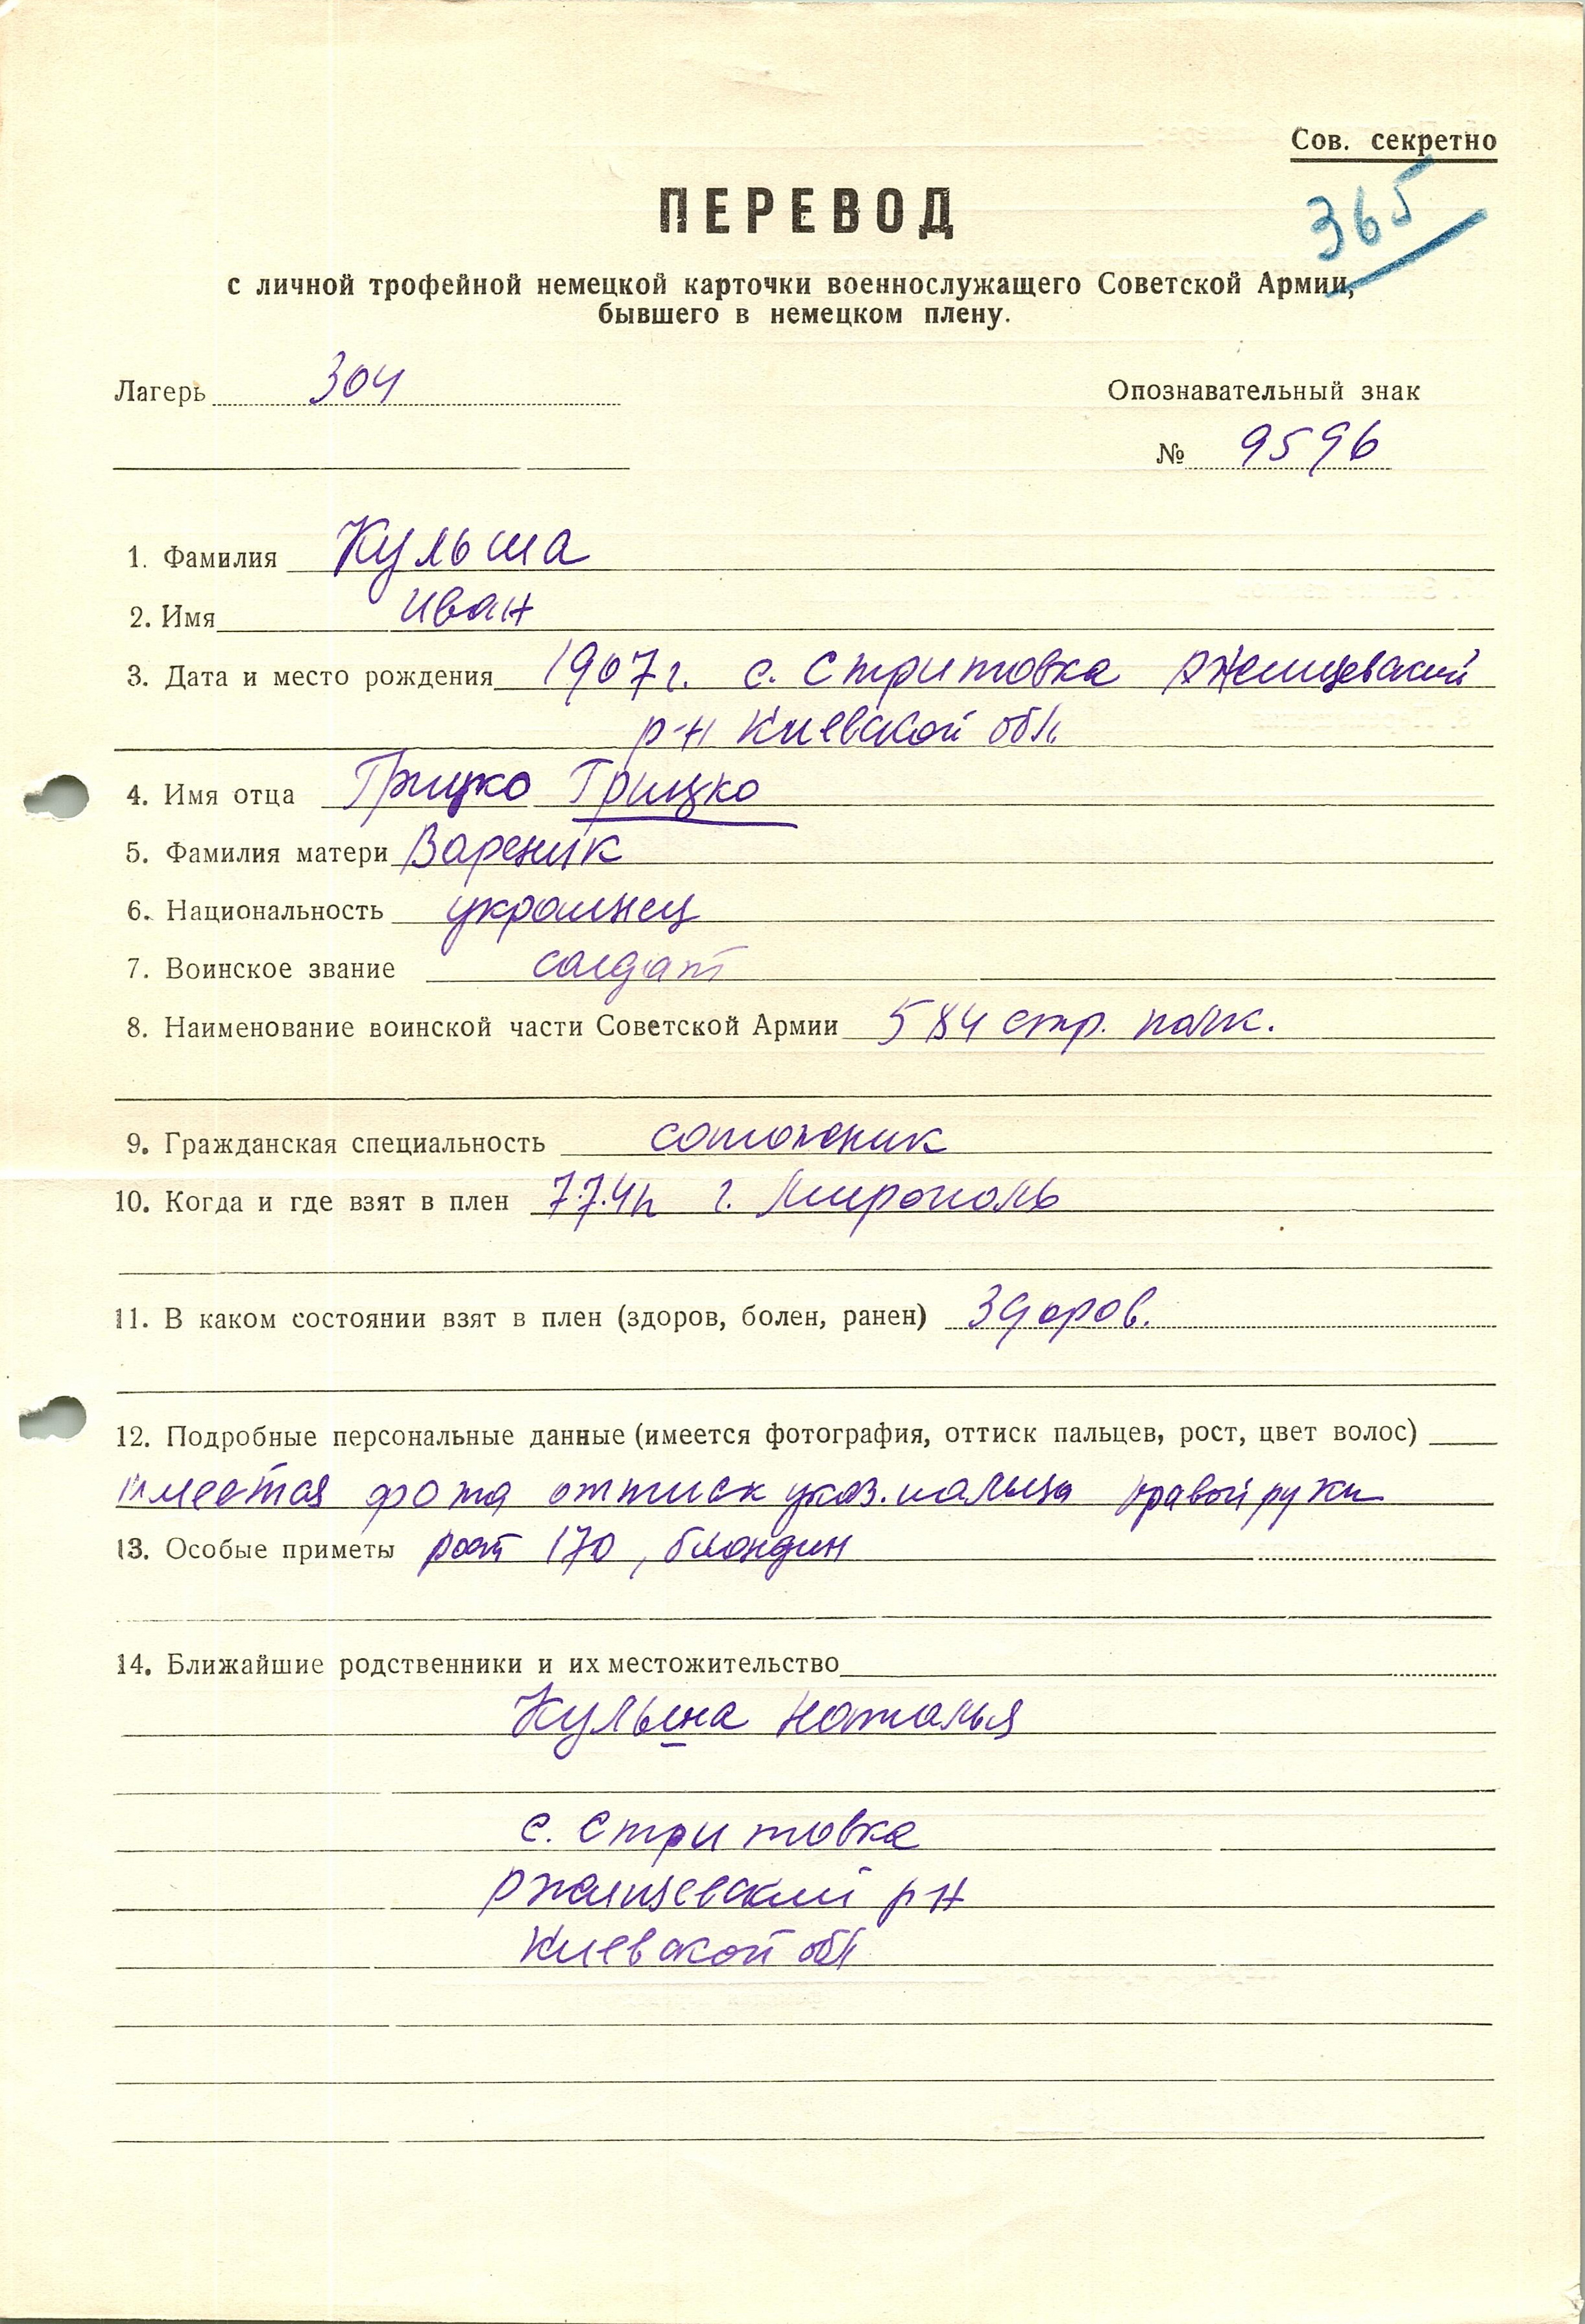 Сов. секретно
365
ПЕРЕВОД
с личной трофейной немецкой карточки военнослужащего Советской Армии,
бывшего в немецком плену.
Лагерь 304
Опознавательный знак
№ 9596
1. Фамилия Кульша
2. Имя Иван
3. Дата и место рождения 1907 г. с. Стритовка Ржищевский
р-н Киевской обл.
4. Имя отца Грицко Грицко
5. Фамилия матери Вареник
6. Национальность украинец
7. Воинское звание солдат
8. Наименование воинской части Советской Армии 584 стр. полк.
9. Гражданская специальность
10. Когда и где взят в плен 7.7.41 г. Мирополь
11. В каком состоянии взят в плен (здоров, болен, ранен) здоров.
12. Подробные персональные данные (имеется фотография, оттиск пальцев, рост, цвет волос)
имеется фото оттиск указ. пальца правой руки
13. Особые приметы рост 170, блондин
14. Ближайшие родственники и их местожительство
Кульша Наталья
с. Стритовка
Ржищевский р-н
Киевской обл